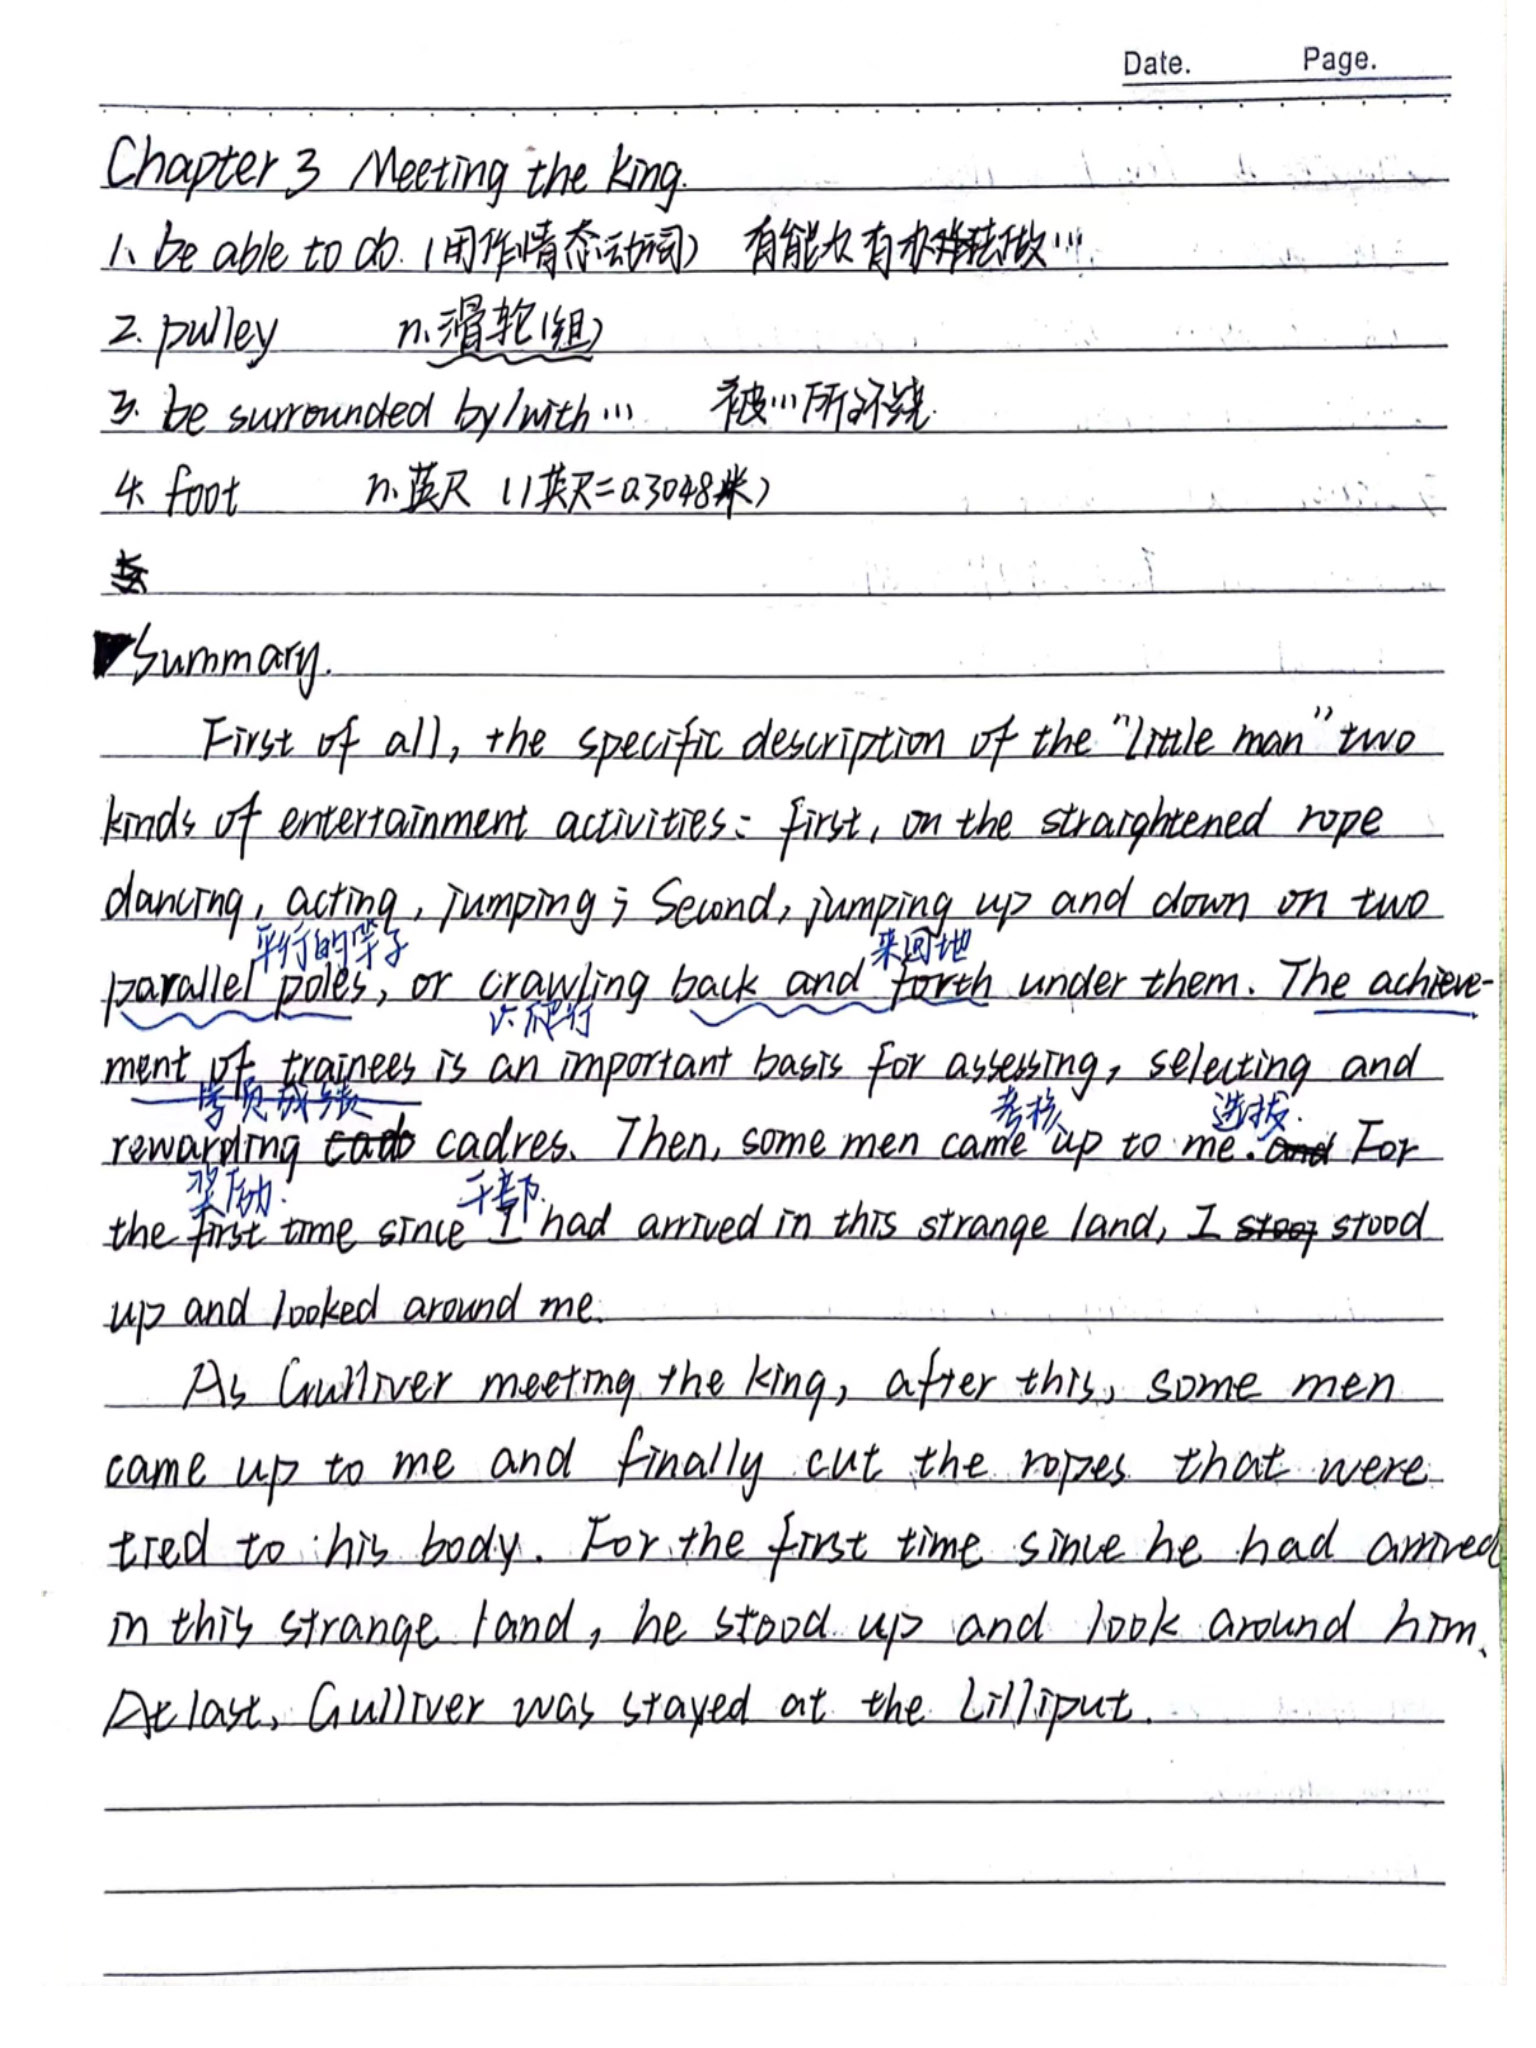 Date. Page.
Chapter 3 Meeting the king.
1. be able to do. (用作情态动词) 有能力有办法做...
2. pulley n.滑轮(组)
3. be surrounded by/with... 被...所环绕.
4. foot n.英尺 (1英尺=0.3048米)
Summary.
First of all, the specific description of the "little man" two
kinds of entertainment activities: first, on the straightened rope
dancing, acting, jumping; Second, jumping up and down on two
平行的竿子 来回地
parallel poles, or crawling back and forth under them. The achieve-
爬行
ment of trainees is an important basis for assessing, selecting and
学员成绩 考核 选拔.
rewarding cadres. Then, some men came up to me. For
奖励. 干部.
the first time since I had arrived in this strange land, I stood
up and looked around me.
As Gulliver meeting the king, after this, some men
came up to me and finally cut the ropes that were
tied to his body. For the first time since he had arrived
in this strange land, he stood up and look around him.
At last, Gulliver was stayed at the Lilliput.